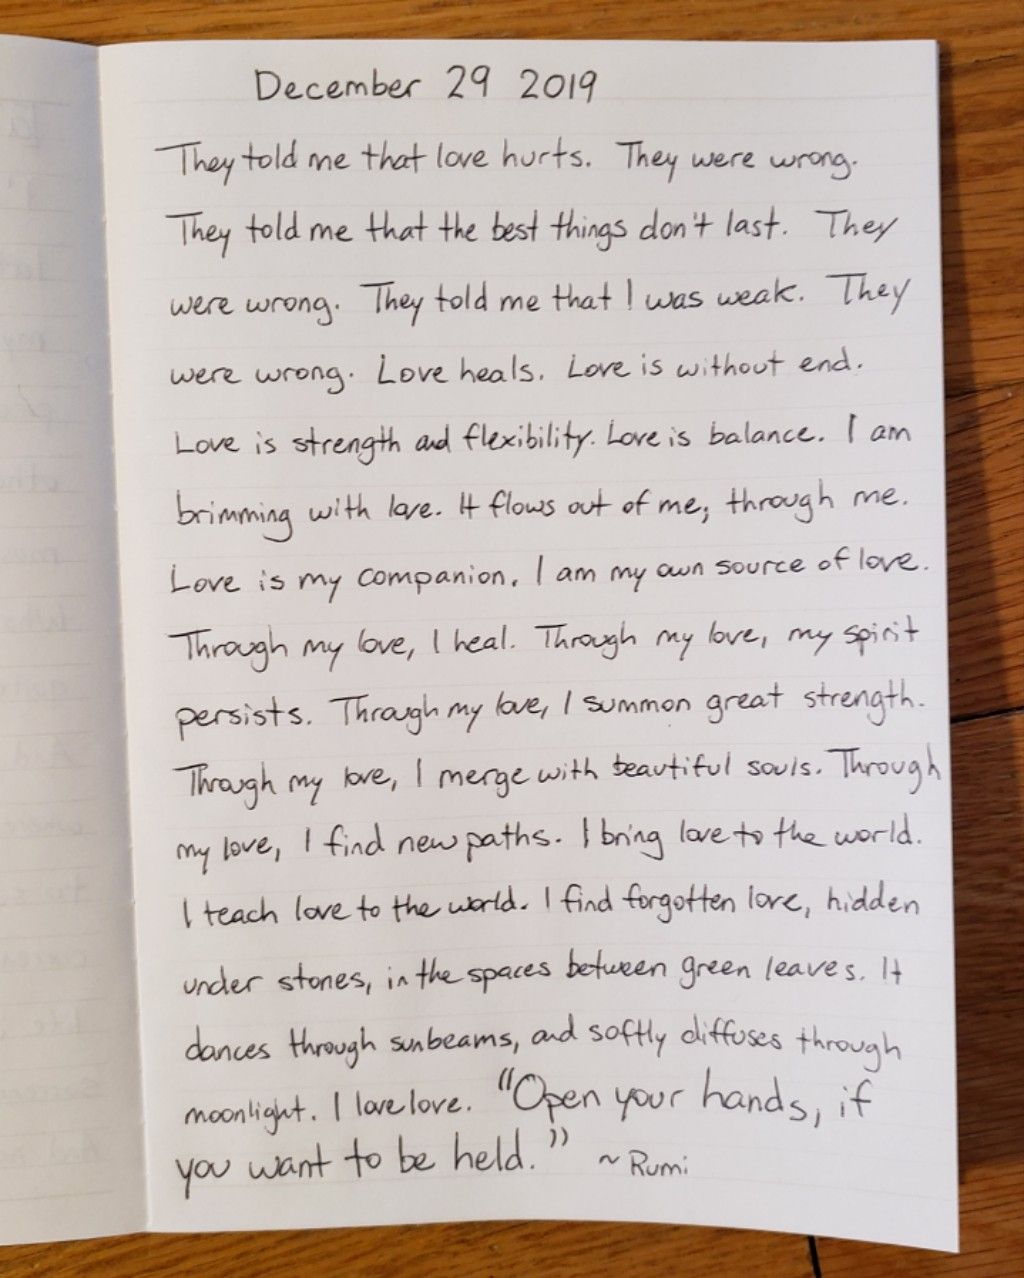 December 29 2019
They told me that love hurts. They were wrong.
They told me that the best things don't last. They
were wrong. They told me that I was weak. They
were wrong. Love heals. Love is without end.
Love is strength and flexibility. Love is balance. I am
brimming with love. It flows out of me, through me.
Love is my companion. I am my own source of love.
Through my love, I heal. Through my love, my spirit
persists. Through my love, I summon great strength.
Through my love, I merge with beautiful souls. Through
my love, I find new paths. I bring love to the world.
I teach love to the world. I find forgotten love, hidden
under stones, in the spaces between green leaves. It
dances through sunbeams, and softly diffuses through
moonlight. I love love. "Open your hands, if
you want to be held." ~ Rumi